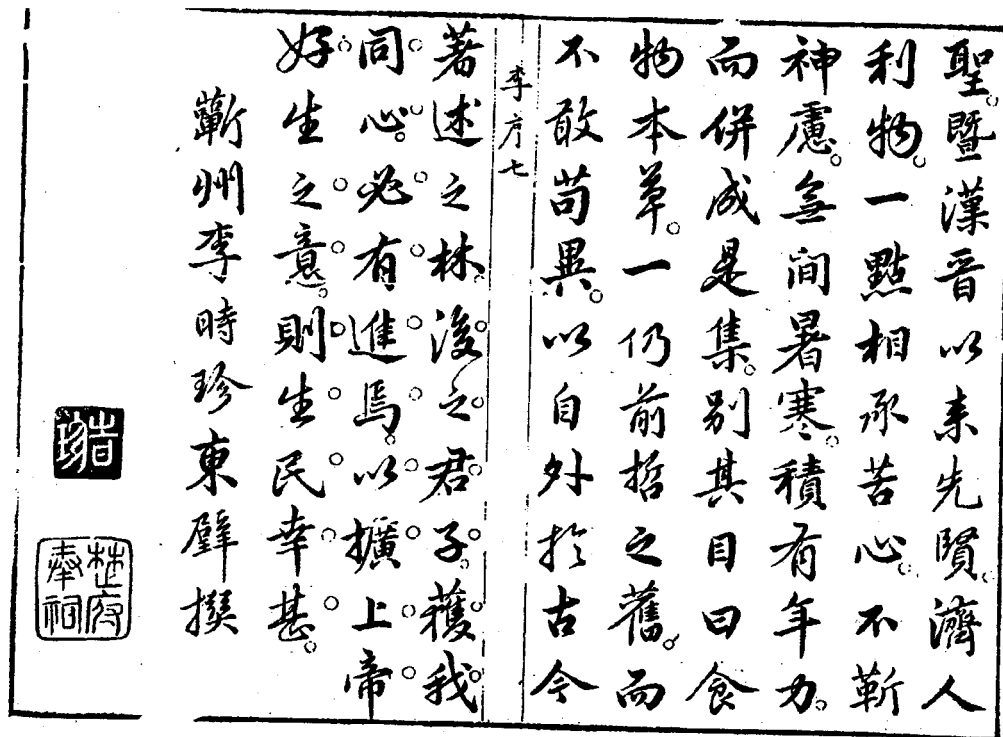 聖暨漢晉以来先賢濟人
利物一點相承苦心不蘄
神慮無间暑寒積有年力
而併成是集别其目曰食
物本草一仍前哲之舊而
不敢苟異以自外於古今
李序七
著述之林後之君子穫我
同心必有進焉以擴上帝
好生之意則生民幸甚
蘄州李時珍東璧撰
時珍
楚府奉祠